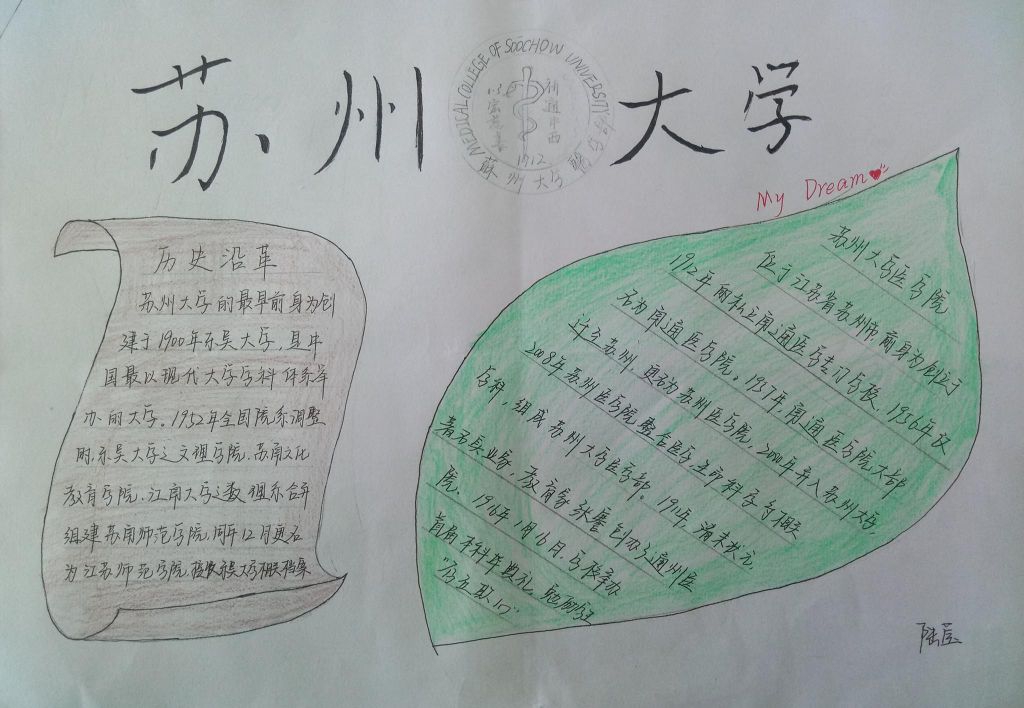 苏州大学
MEDICAL COLLEGE OF SOOCHOW UNIVERSITY
蘇州大学醫学
1912
My Dream
历史沿革
苏州大学的最早前身为创
建于1900年东吴大学,是中
国最以现代大学学科体系举
办的大学。1952年全国院系调整
时,东吴大学之文理学院、苏南文化
教育学院、江南大学之数理系合并
组建苏南师范学院,同年12月更名
为江苏师范学院
苏州大学医学院
位于江苏省苏州市,前身为创立于
1912年的私立南通医学专门学校,1956年改
名为南通医学院。1957年,南通医学院大部
迁至苏州,更名为苏州医学院,2000年并入苏州大学,
2008年苏州医学院整合医学、生命科学与相关
学科,组成苏州大学医学部。1911年,清末状元,
著名实业家,教育家张謇创办之通州医
院。1916年1月16日,学校举办
首届本科毕业